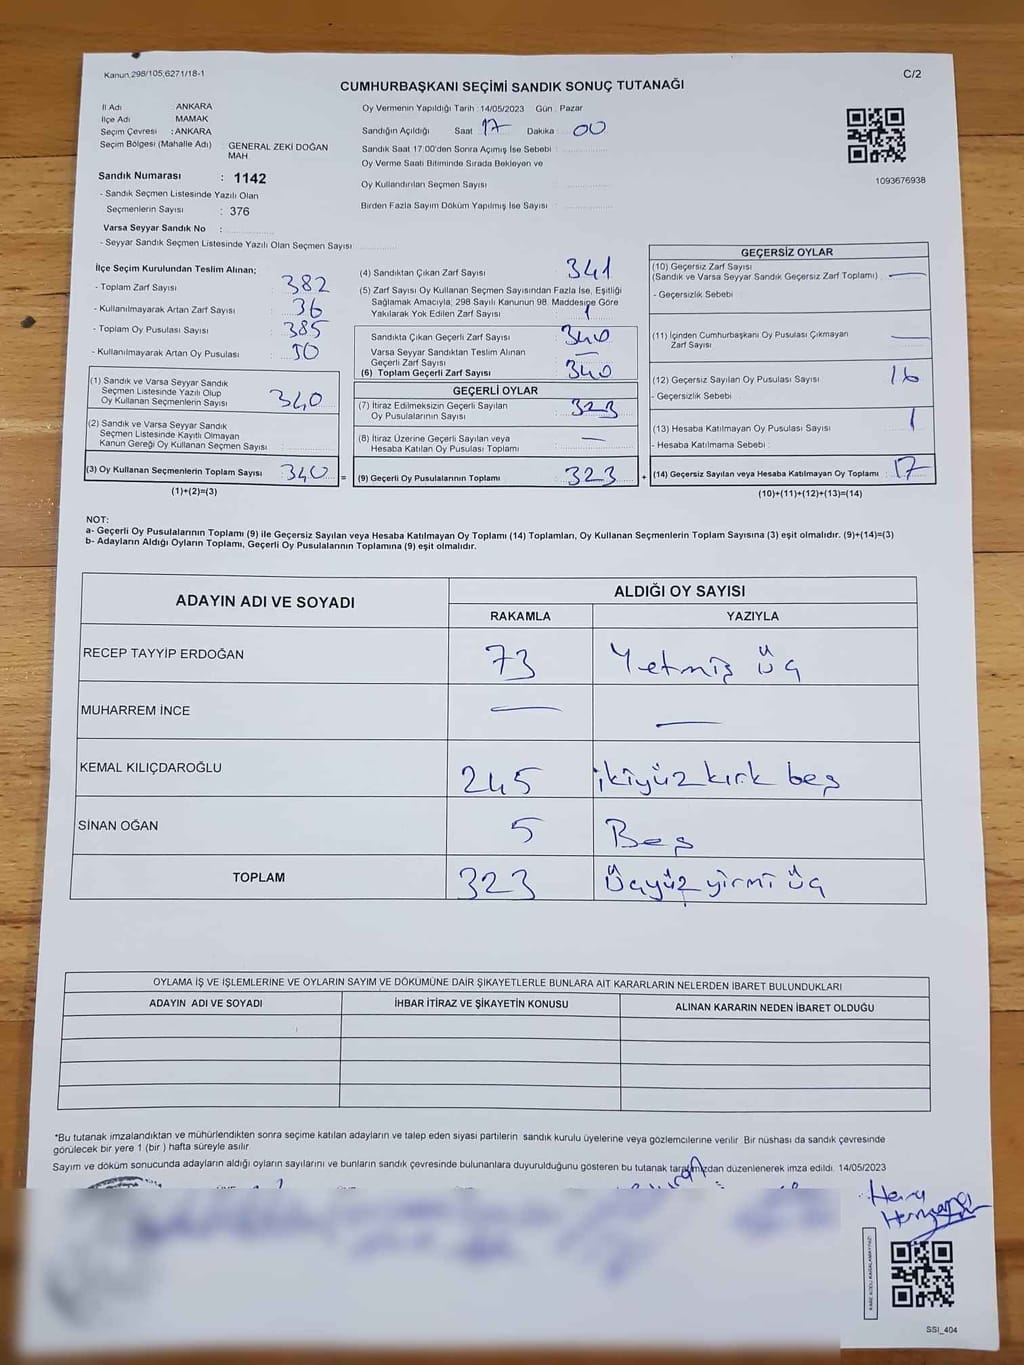 Kanun,298/105,6271/18-1
C/2
CUMHURBAŞKANI SEÇİMİ SANDIK SONUÇ TUTANAĞI
İl Adı : ANKARA
İlçe Adı : MAMAK
Seçim Çevresi : ANKARA
Seçim Bölgesi (Mahalle Adı) : GENERAL ZEKİ DOĞAN
MAH
Sandık Numarası : 1142
- Sandık Seçmen Listesinde Yazılı Olan
Seçmenlerin Sayısı : 376
Varsa Seyyar Sandık No :
- Seyyar Sandık Seçmen Listesinde Yazılı Olan Seçmen Sayısı
Oy Vermenin Yapıldığı Tarih : 14/05/2023 Gün : Pazar
Sandığın Açıldığı Saat : 17 Dakika : 00
Sandık Saat 17:00'den Sonra Açılmış İse Sebebi :
Oy Verme Saati Bitiminde Sırada Bekleyen ve
Oy Kullandırılan Seçmen Sayısı
Birden Fazla Sayım Döküm Yapılmış İse Sayısı :
1093676938
İlçe Seçim Kurulundan Teslim Alınan;
- Toplam Zarf Sayısı : 382
- Kullanılmayarak Artan Zarf Sayısı : 36
- Toplam Oy Pusulası Sayısı : 385
- Kullanılmayarak Artan Oy Pusulası : 50
(1) Sandık ve Varsa Seyyar Sandık
Seçmen Listesinde Yazılı Olup
Oy Kullanan Seçmenlerin Sayısı : 340
(2) Sandık ve Varsa Seyyar Sandık
Seçmen Listesinde Kayıtlı Olmayan
Kanun Gereği Oy Kullanan Seçmen Sayısı :
(3) Oy Kullanan Seçmenlerin Toplam Sayısı : 340 =
(1)+(2)=(3)
(4) Sandıktan Çıkan Zarf Sayısı : 341
(5) Zarf Sayısı Oy Kullanan Seçmen Sayısından Fazla İse, Eşitliği
Sağlamak Amacıyla; 298 Sayılı Kanunun 98. Maddesine Göre
Yakılarak Yok Edilen Zarf Sayısı : 1
Sandıkta Çıkan Geçerli Zarf Sayısı : 340
Varsa Seyyar Sandıktan Teslim Alınan
Geçerli Zarf Sayısı : —
(6) Toplam Geçerli Zarf Sayısı : 340
GEÇERLİ OYLAR
(7) İtiraz Edilmeksizin Geçerli Sayılan
Oy Pusulalarının Sayısı : 323
(8) İtiraz Üzerine Geçerli Sayılan veya
Hesaba Katılan Oy Pusulası Toplamı : —
(9) Geçerli Oy Pusulalarının Toplamı : 323 +
GEÇERSİZ OYLAR
(10) Geçersiz Zarf Sayısı
(Sandık ve Varsa Seyyar Sandık Geçersiz Zarf Toplamı) : —
- Geçersizlik Sebebi :
(11) İçinden Cumhurbaşkanı Oy Pusulası Çıkmayan
Zarf Sayısı : —
(12) Geçersiz Sayılan Oy Pusulası Sayısı : 16
- Geçersizlik Sebebi :
(13) Hesaba Katılmayan Oy Pusulası Sayısı : 1
- Hesaba Katılmama Sebebi :
(14) Geçersiz Sayılan veya Hesaba Katılmayan Oy Toplamı : 17
(10)+(11)+(12)+(13)=(14)
NOT:
a- Geçerli Oy Pusulalarının Toplamı (9) ile Geçersiz Sayılan veya Hesaba Katılmayan Oy Toplamı (14) Toplamları, Oy Kullanan Seçmenlerin Toplam Sayısına (3) eşit olmalıdır. (9)+(14)=(3)
b- Adayların Aldığı Oyların Toplamı, Geçerli Oy Pusulalarının Toplamına (9) eşit olmalıdır.
ADAYIN ADI VE SOYADI
ALDIĞI OY SAYISI
RAKAMLA YAZIYLA
RECEP TAYYİP ERDOĞAN 73 Yetmiş üç
MUHARREM İNCE — —
KEMAL KILIÇDAROĞLU 245 ikiyüz kırk beş
SİNAN OĞAN 5 Beş
TOPLAM 323 üçyüz yirmi üç
OYLAMA İŞ VE İŞLEMLERİNE VE OYLARIN SAYIM VE DÖKÜMÜNE DAİR ŞİKAYETLERLE BUNLARA AİT KARARLARIN NELERDEN İBARET BULUNDUKLARI
ADAYIN ADI VE SOYADI İHBAR İTİRAZ VE ŞİKAYETİN KONUSU ALINAN KARARIN NEDEN İBARET OLDUĞU
*Bu tutanak imzalandıktan ve mühürlendikten sonra seçime katılan adayların ve talep eden siyasi partilerin sandık kurulu üyelerine veya gözlemcilerine verilir. Bir nüshası da sandık çevresinde
görülecek bir yere 1 (bir ) hafta süreyle asılır.
Sayım ve döküm sonucunda adayların aldığı oyların sayılarını ve bunların sandık çevresinde bulunanlara duyurulduğunu gösteren bu tutanak tarafımızdan düzenlenerek imza edildi. 14/05/2023
SSI_404